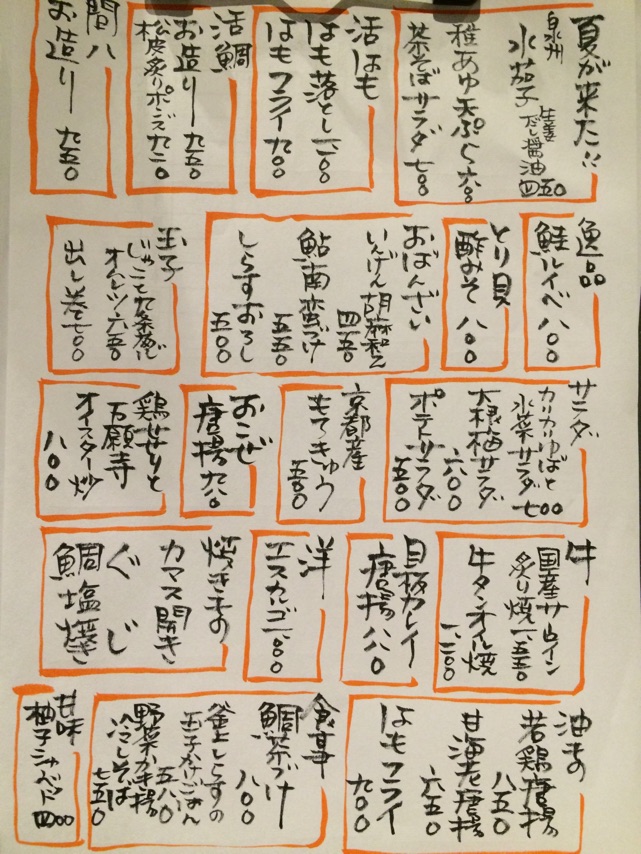 夏が来た!!
泉州
水茄子 生姜だし醤油 四五〇
稚あゆ天ぷら 六〇〇
茶そばサラダ 七〇〇
活はも
はも落とし 一、二〇〇
はもフライ 九〇〇
活鯛
お造り 九五〇
松皮炙りポンズ 九二〇
間八
お造り 九五〇
逸品
鮭ルイベ 八〇〇
とり貝
酢みそ 八〇〇
おばんざい
いんげん胡麻和え 四五〇
鮎南蛮づけ 五五〇
しらすおろし 五〇〇
玉子
じゃこと九条葱
オムレツ 六五〇
出し巻 七〇〇
サラダ
カリカリゆばと
水菜サラダ 七〇〇
大根梅サラダ 六〇〇
ポテトサラダ 五〇〇
京都産
もろきゅう 五〇〇
おこぜ
唐揚 九八〇
鶏せせりと
万願寺
オイスター炒 八〇〇
牛
国産サーロイン
炙り焼 一、五五〇
牛タンオイル焼 一、二〇〇
目板カレイ
唐揚 八八〇
洋
エスカルゴ 一、八〇〇
焼きもの
カマス開き
ぐじ
鯛塩焼き
油もの
若鶏唐揚 八五〇
甘海老唐揚 六五〇
はもフライ 九〇〇
食事
鯛茶づけ 八〇〇
釜上しらすの
玉子かけごはん 五八〇
野菜かき揚
冷しそば 七五〇
甘味
柚子シャーベット 四〇〇